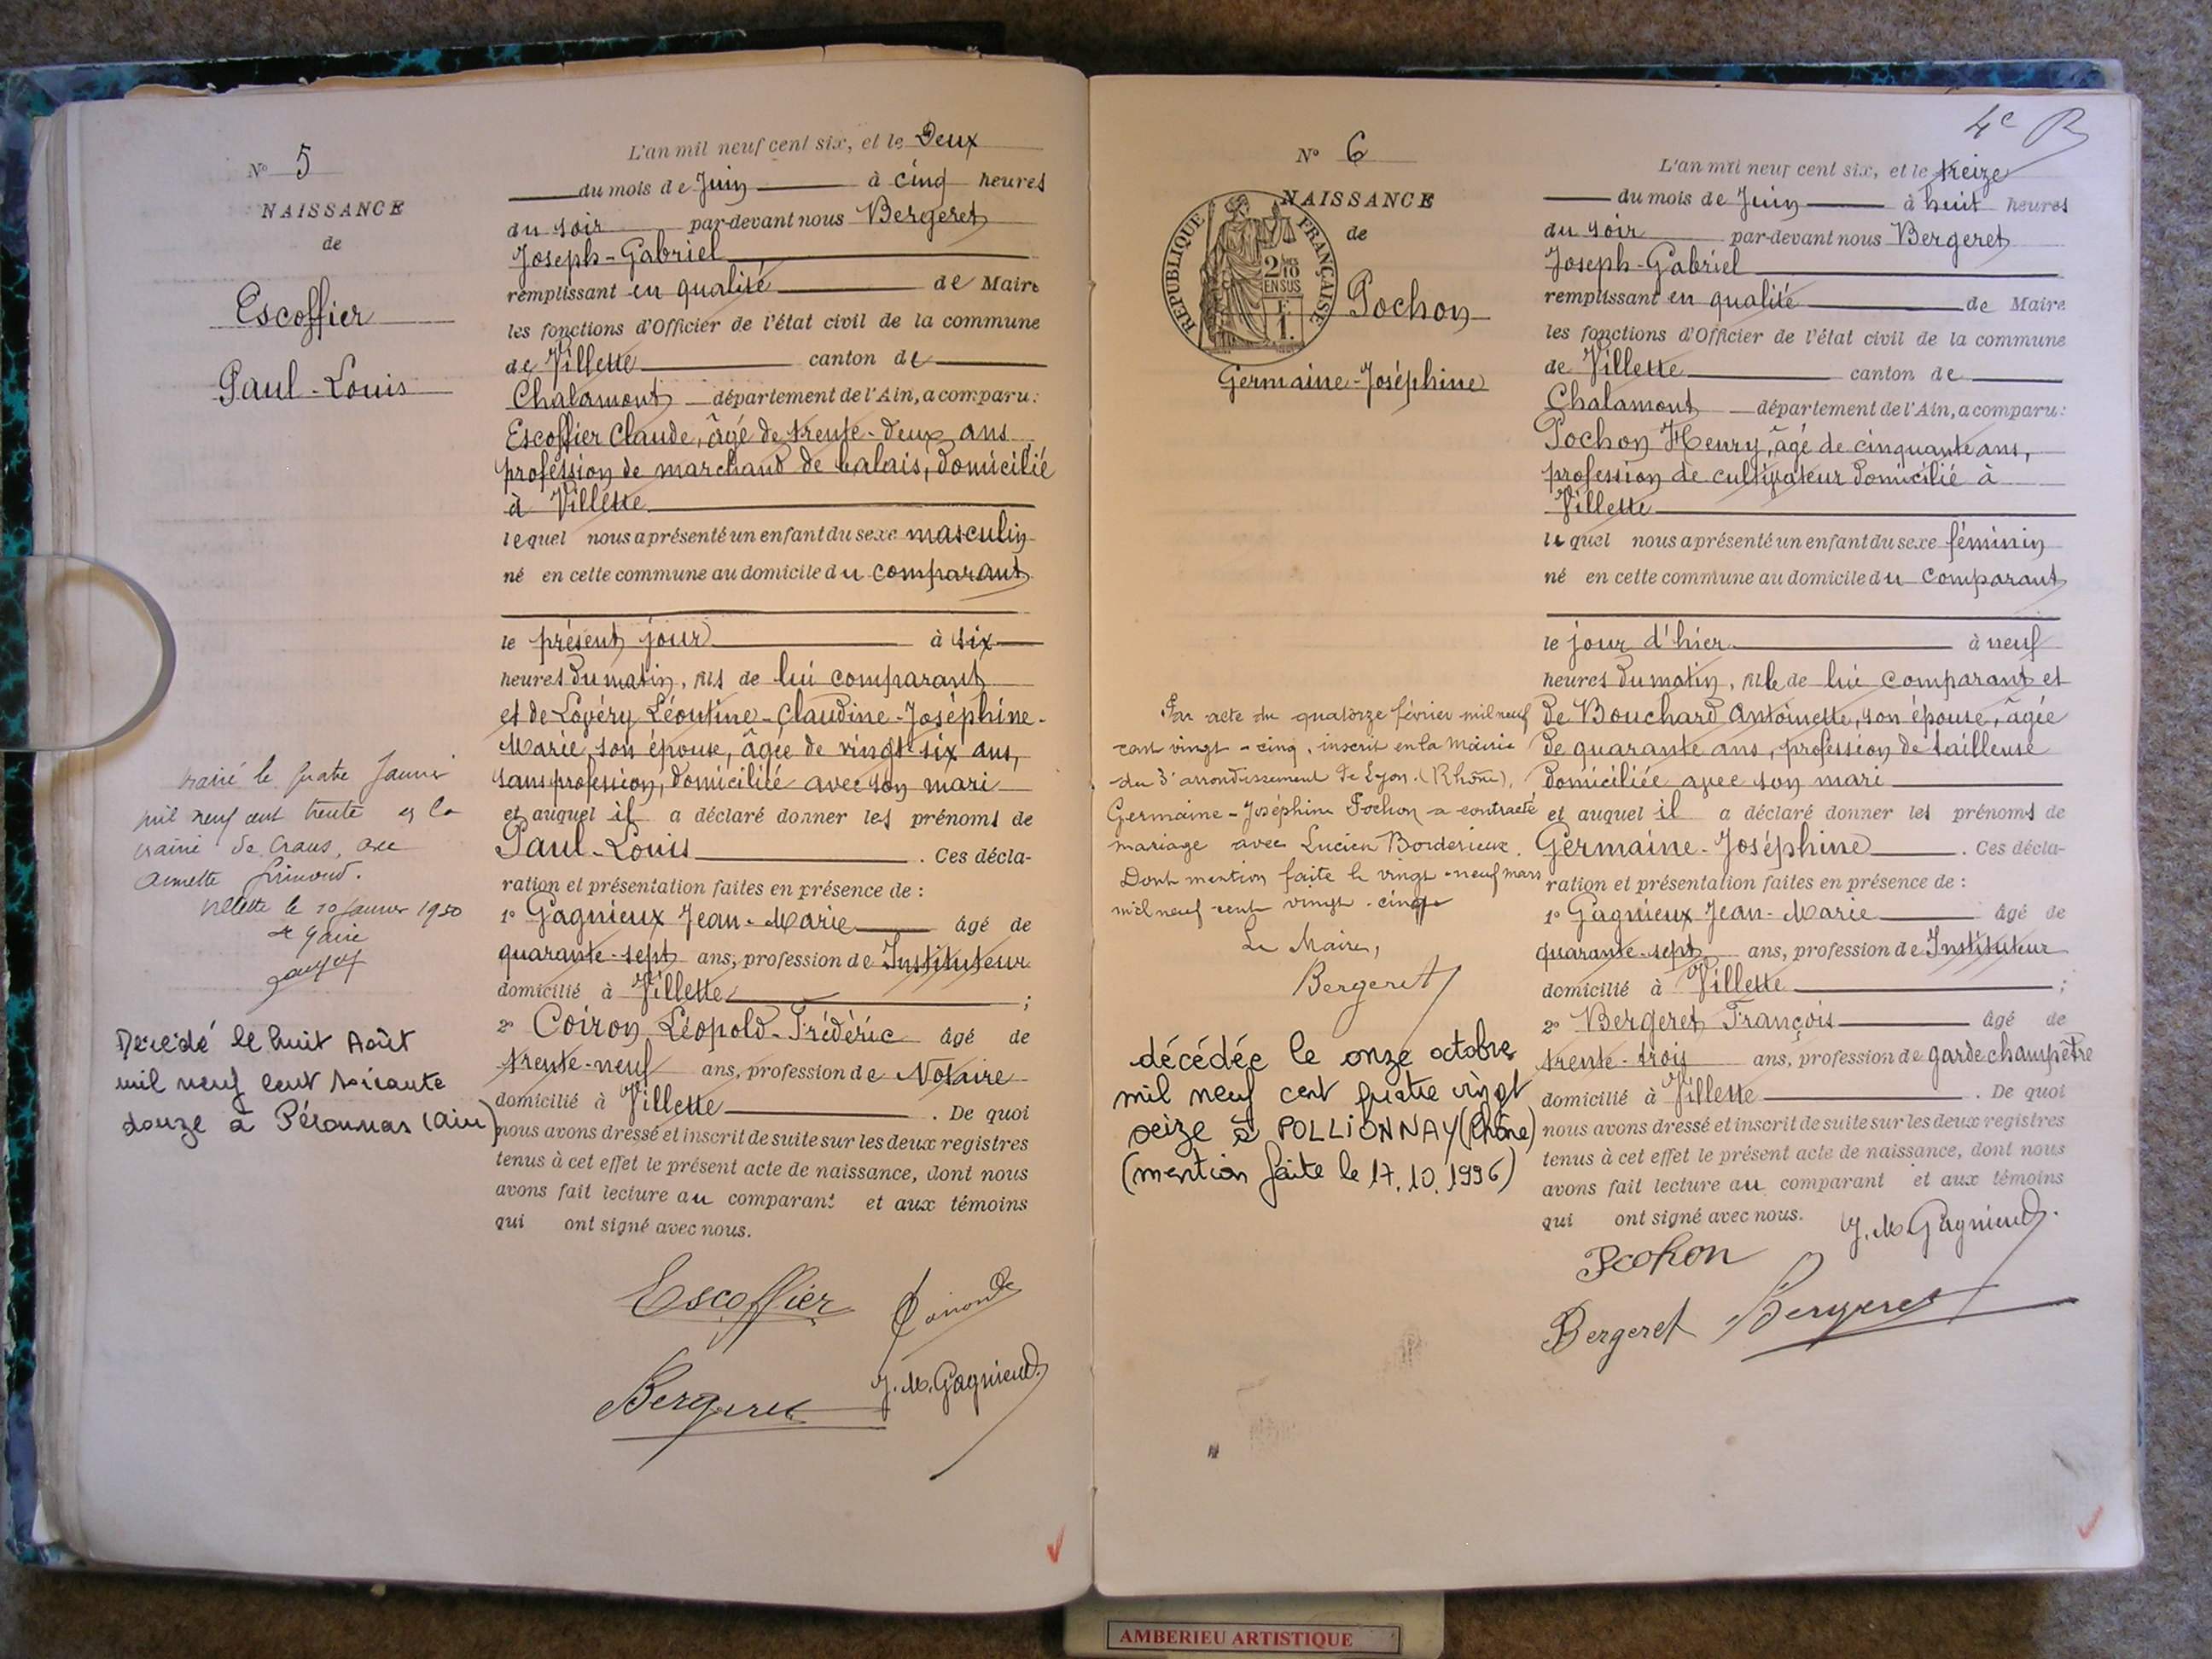 N° 5
NAISSANCE
de
Escoffier
Paul-Louis
marié le quatre Janvier
mil neuf cent trente à la
mairie de Crans, avec
Annette
Villette le 10 Janvier 1930
le Maire
Décédé le huit Août
mil neuf cent soixante
douze à Péronnas (Ain)
L'an mil neuf cent six, et le Deux
du mois de Juin à cinq heures
du soir par-devant nous Bergeret
Joseph-Gabriel
remplissant en qualité de Maire
les fonctions d'Officier de l'état civil de la commune
de Villette canton de
Chalamont département de l'Ain, a comparu:
Escoffier Claude, âgé de trente-deux ans
profession de marchand de balais, domicilié
à Villette
lequel nous a présenté un enfant du sexe masculin
né en cette commune au domicile du comparant
le présent jour à six
heures du matin, fils de lui comparant
et de Lovéry Léontine-Claudine-Joséphine-
Marie son épouse, âgée de vingt-six ans,
sans profession, domiciliée avec son mari
et auquel il a déclaré donner les prénoms de
Paul-Louis . Ces décla-
ration et présentation faites en présence de :
1° Gagnieux Jean-Marie âgé de
quarante-sept ans, profession de Instituteur
domicilié à Villette ;
2° Coiron Léopold-Frédéric âgé de
trente-neuf ans, profession de Notaire
domicilié à Villette . De quoi
nous avons dressé et inscrit de suite sur les deux registres
tenus à cet effet le présent acte de naissance, dont nous
avons fait lecture au comparant et aux témoins
qui ont signé avec nous.
Escoffier
Bergeret J. M. Gagnieux
4e B
N° 6
NAISSANCE
de
REPUBLIQUE FRANÇAISE
2/10
EN SUS
Pochon
Germaine-Joséphine
Par acte du quatorze février mil neuf
cent vingt-cinq, inscrit en la Mairie
du 3e arrondissement de Lyon (Rhône),
Germaine-Joséphine Pochon a contracté
mariage avec Lucien Borderieux.
Dont mention faite le vingt-neuf mars
mil neuf cent vingt-cinq
Le Maire,
Bergeret
décédée le onze octobre
mil neuf cent quatre vingt
seize à POLLIONNAY (Rhône)
(mention faite le 17.10.1996)
L'an mil neuf cent six, et le treize
du mois de Juin à huit heures
du soir par-devant nous Bergeret
Joseph-Gabriel
remplissant en qualité de Maire
les fonctions d'Officier de l'état civil de la commune
de Villette canton de
Chalamont département de l'Ain, a comparu:
Pochon Henry, âgé de cinquante ans,
profession de cultivateur domicilié à
Villette
lequel nous a présenté un enfant du sexe féminin
né en cette commune au domicile du comparant
le jour d'hier à neuf
heures du matin, fille de lui comparant et
de Bouchard Antoinette, son épouse, âgée
de quarante ans, profession de tailleuse
domiciliée avec son mari
et auquel il a déclaré donner les prénoms de
Germaine-Joséphine . Ces décla-
ration et présentation faites en présence de :
1° Gagnieux Jean-Marie âgé de
quarante-sept ans, profession de Instituteur
domicilié à Villette ;
2° Bergeret François âgé de
trente-trois ans, profession de garde champêtre
domicilié à Villette . De quoi
nous avons dressé et inscrit de suite sur les deux registres
tenus à cet effet le présent acte de naissance, dont nous
avons fait lecture au comparant et aux témoins
qui ont signé avec nous. J. M. Gagnieux.
Pochon
Bergeret Bergeret
AMBERIEU ARTISTIQUE